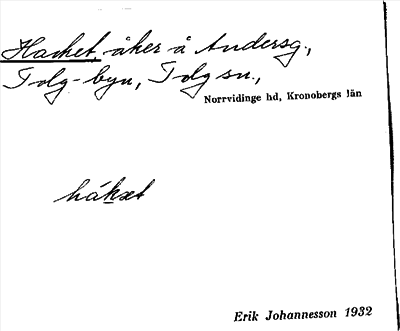 Hacket, åker å Andersg.,
Tolg-byn, Tolg sn.,
Norrvidinge hd, Kronobergs län
håkət
Erik Johannesson 1932